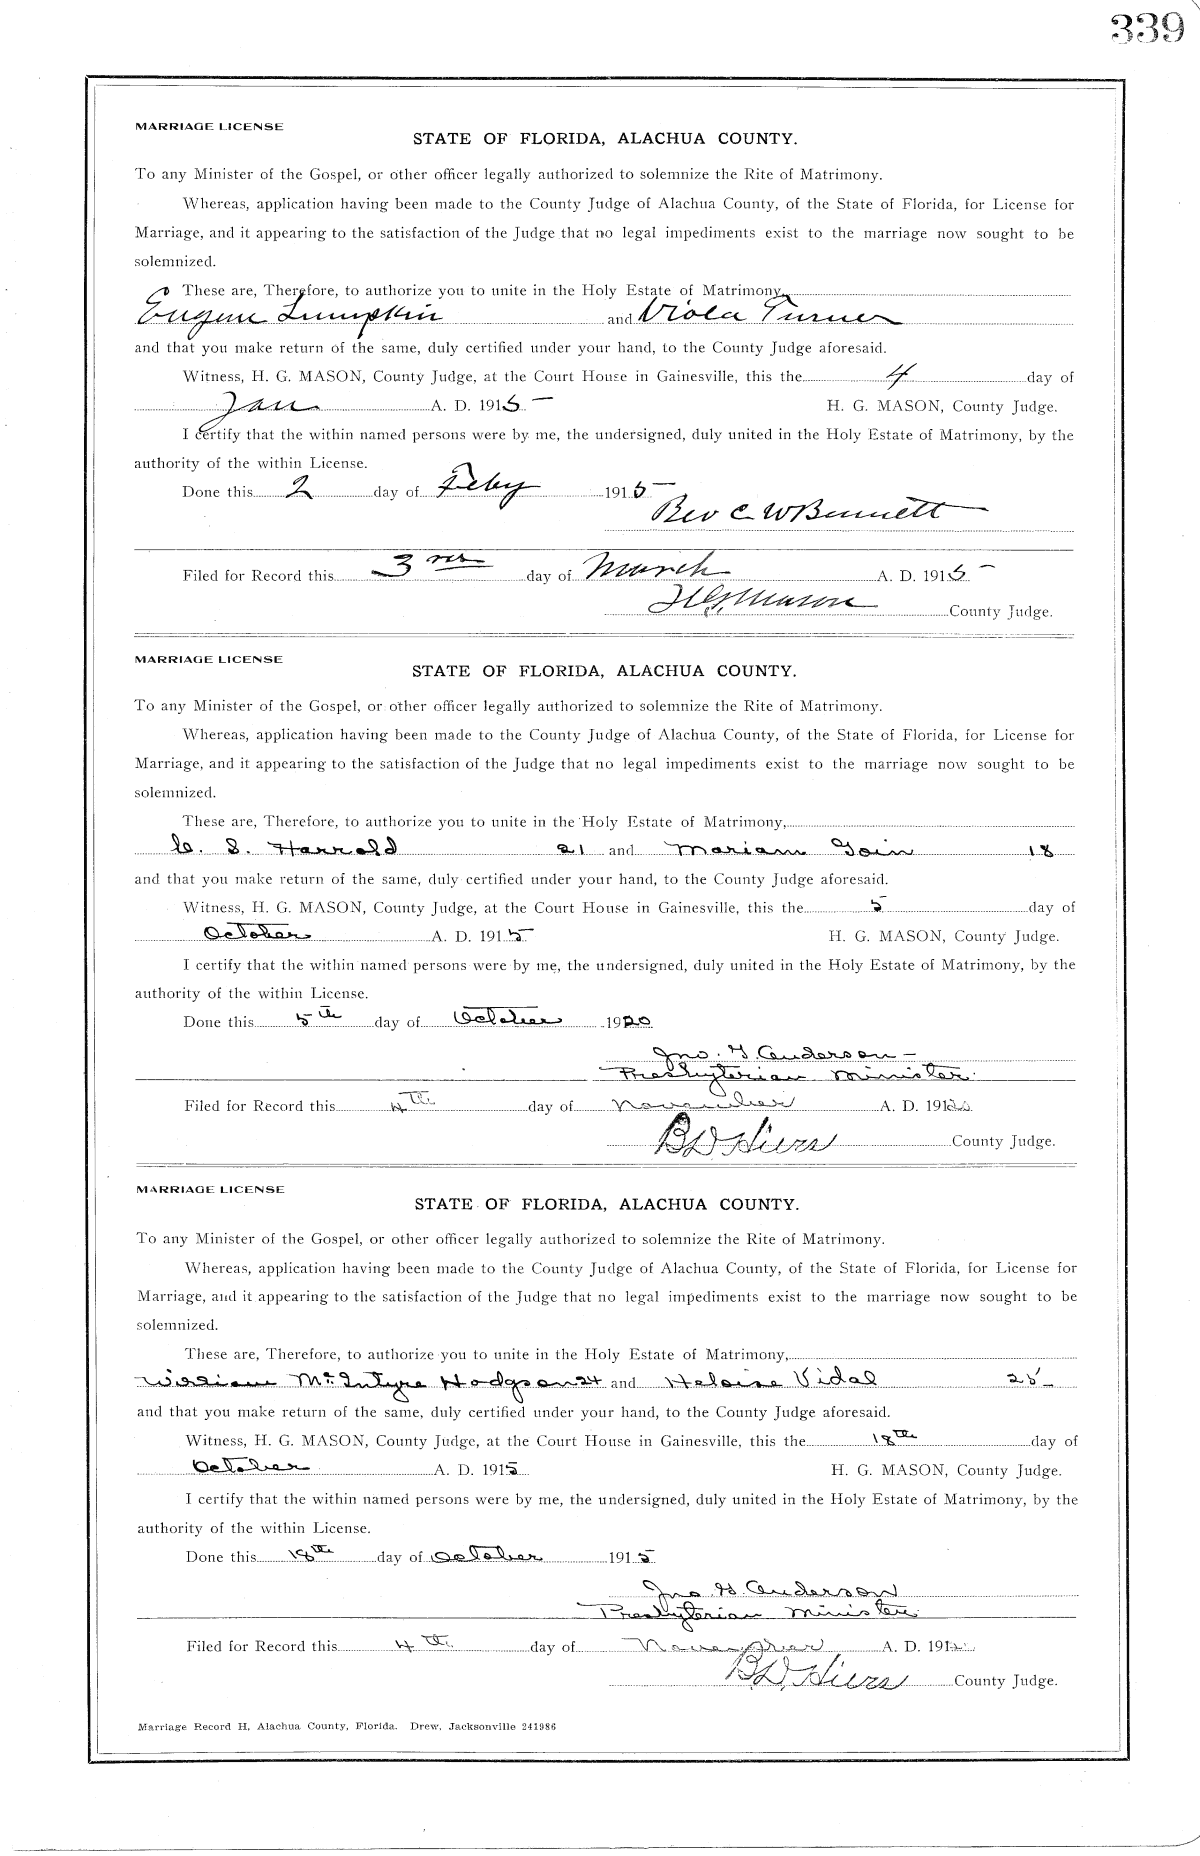 339
MARRIAGE LICENSE
STATE OF FLORIDA, ALACHUA COUNTY.
To any Minister of the Gospel, or other officer legally authorized to solemnize the Rite of Matrimony.
Whereas, application having been made to the County Judge of Alachua County, of the State of Florida, for License for
Marriage, and it appearing to the satisfaction of the Judge that no legal impediments exist to the marriage now sought to be
solemnized.
These are, Therefore, to authorize you to unite in the Holy Estate of Matrimony,
Eugene Lumpkin and Viola Turner
and that you make return of the same, duly certified under your hand, to the County Judge aforesaid.
Witness, H. G. MASON, County Judge, at the Court House in Gainesville, this the 4 day of
Jan A. D. 1915 H. G. MASON, County Judge.
I certify that the within named persons were by me, the undersigned, duly united in the Holy Estate of Matrimony, by the
authority of the within License.
Done this 2 day of Feby 1915
Rev C W Bennett
Filed for Record this 3rd day of March A. D. 1915
H G Mason County Judge.
MARRIAGE LICENSE
STATE OF FLORIDA, ALACHUA COUNTY.
To any Minister of the Gospel, or other officer legally authorized to solemnize the Rite of Matrimony.
Whereas, application having been made to the County Judge of Alachua County, of the State of Florida, for License for
Marriage, and it appearing to the satisfaction of the Judge that no legal impediments exist to the marriage now sought to be
solemnized.
These are, Therefore, to authorize you to unite in the Holy Estate of Matrimony,
C. S. Harrold 21 and Mariam Goin 18
and that you make return of the same, duly certified under your hand, to the County Judge aforesaid.
Witness, H. G. MASON, County Judge, at the Court House in Gainesville, this the 5 day of
October A. D. 1915 H. G. MASON, County Judge.
I certify that the within named persons were by me, the undersigned, duly united in the Holy Estate of Matrimony, by the
authority of the within License.
Done this 5th day of October 1920
Jno. G. Anderson -
Presbyterian Minister.
Filed for Record this 4th day of November A. D. 1920
B D Hiers County Judge.
MARRIAGE LICENSE
STATE OF FLORIDA, ALACHUA COUNTY.
To any Minister of the Gospel, or other officer legally authorized to solemnize the Rite of Matrimony.
Whereas, application having been made to the County Judge of Alachua County, of the State of Florida, for License for
Marriage, and it appearing to the satisfaction of the Judge that no legal impediments exist to the marriage now sought to be
solemnized.
These are, Therefore, to authorize you to unite in the Holy Estate of Matrimony,
William McIntyre Hodgson 24 and Heloise Vidal 25
and that you make return of the same, duly certified under your hand, to the County Judge aforesaid.
Witness, H. G. MASON, County Judge, at the Court House in Gainesville, this the 18th day of
October A. D. 1915 H. G. MASON, County Judge.
I certify that the within named persons were by me, the undersigned, duly united in the Holy Estate of Matrimony, by the
authority of the within License.
Done this 18th day of October 1915
Jno G. Anderson
Presbyterian Minister.
Filed for Record this 4th day of November A. D. 191
B. D. Hiers County Judge.
Marriage Record H, Alachua County, Florida. Drew, Jacksonville 241986